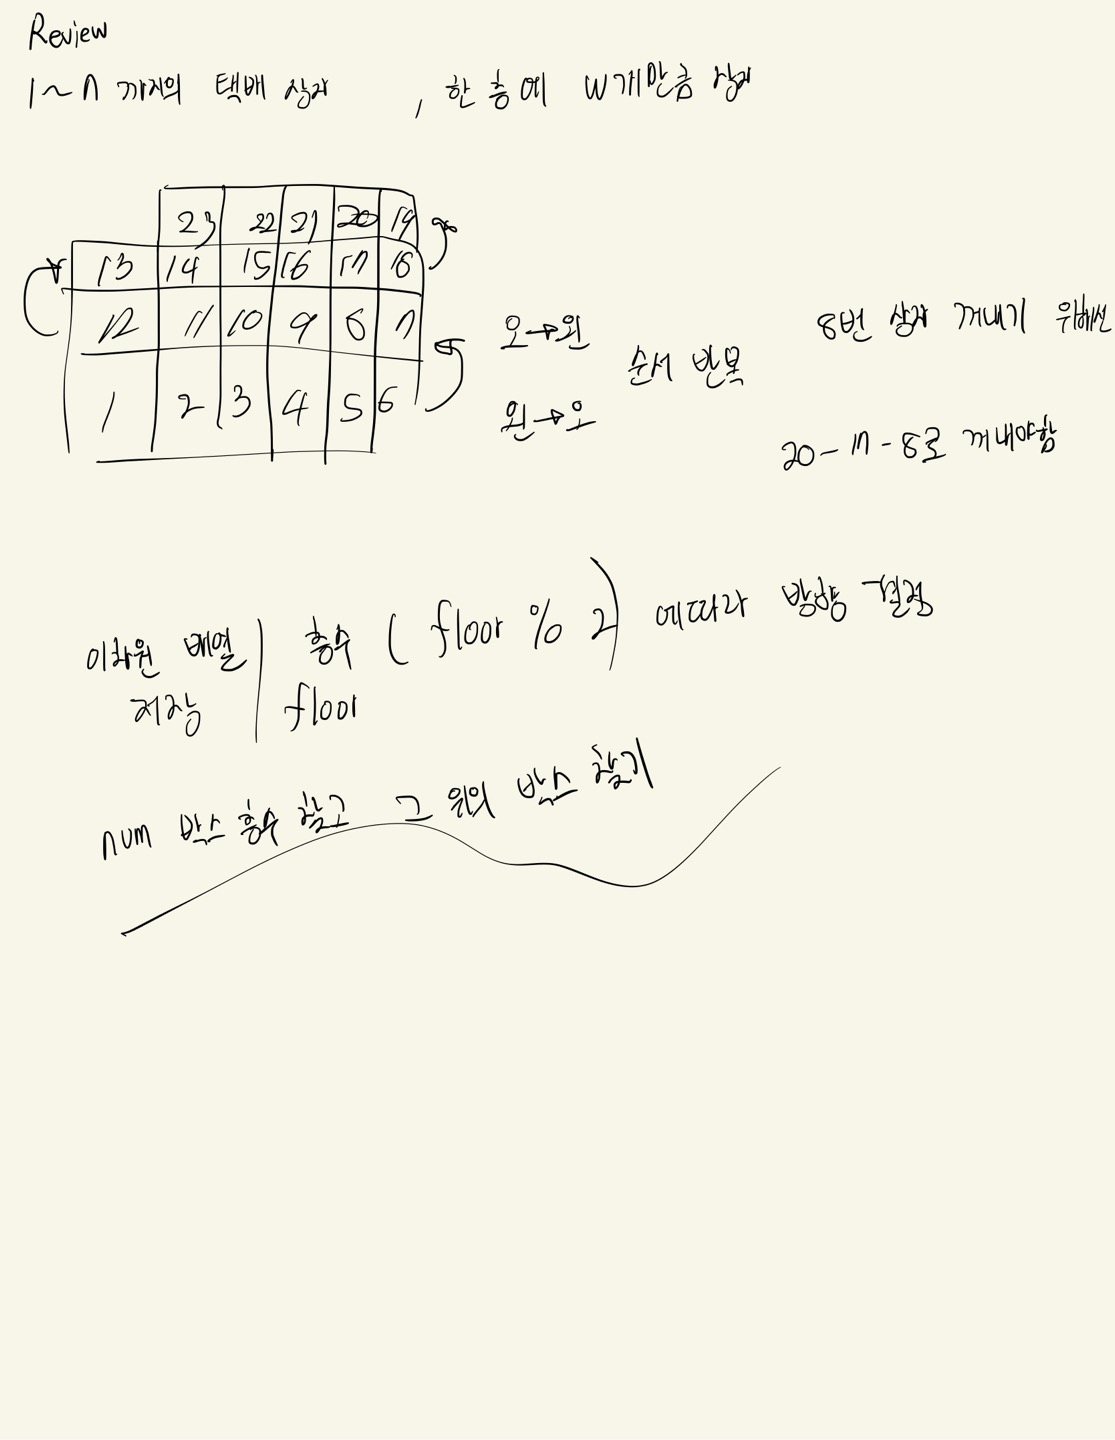 Review
1~n 까지의 택배 상자 , 한 층에 w개만큼 상자
23 22 21 20 19
13 14 15 16 17 18
12 11 10 9 8 7
1 2 3 4 5 6
오→왼
왼→오
순서 반복
8번 상자 꺼내기 위해선
20-17-8로 꺼내야함
이차원 배열 저장
층수 (floor % 2) 에따라 방향 결정
floor
num 박스 층수 찾고 그 위의 박스 찾기